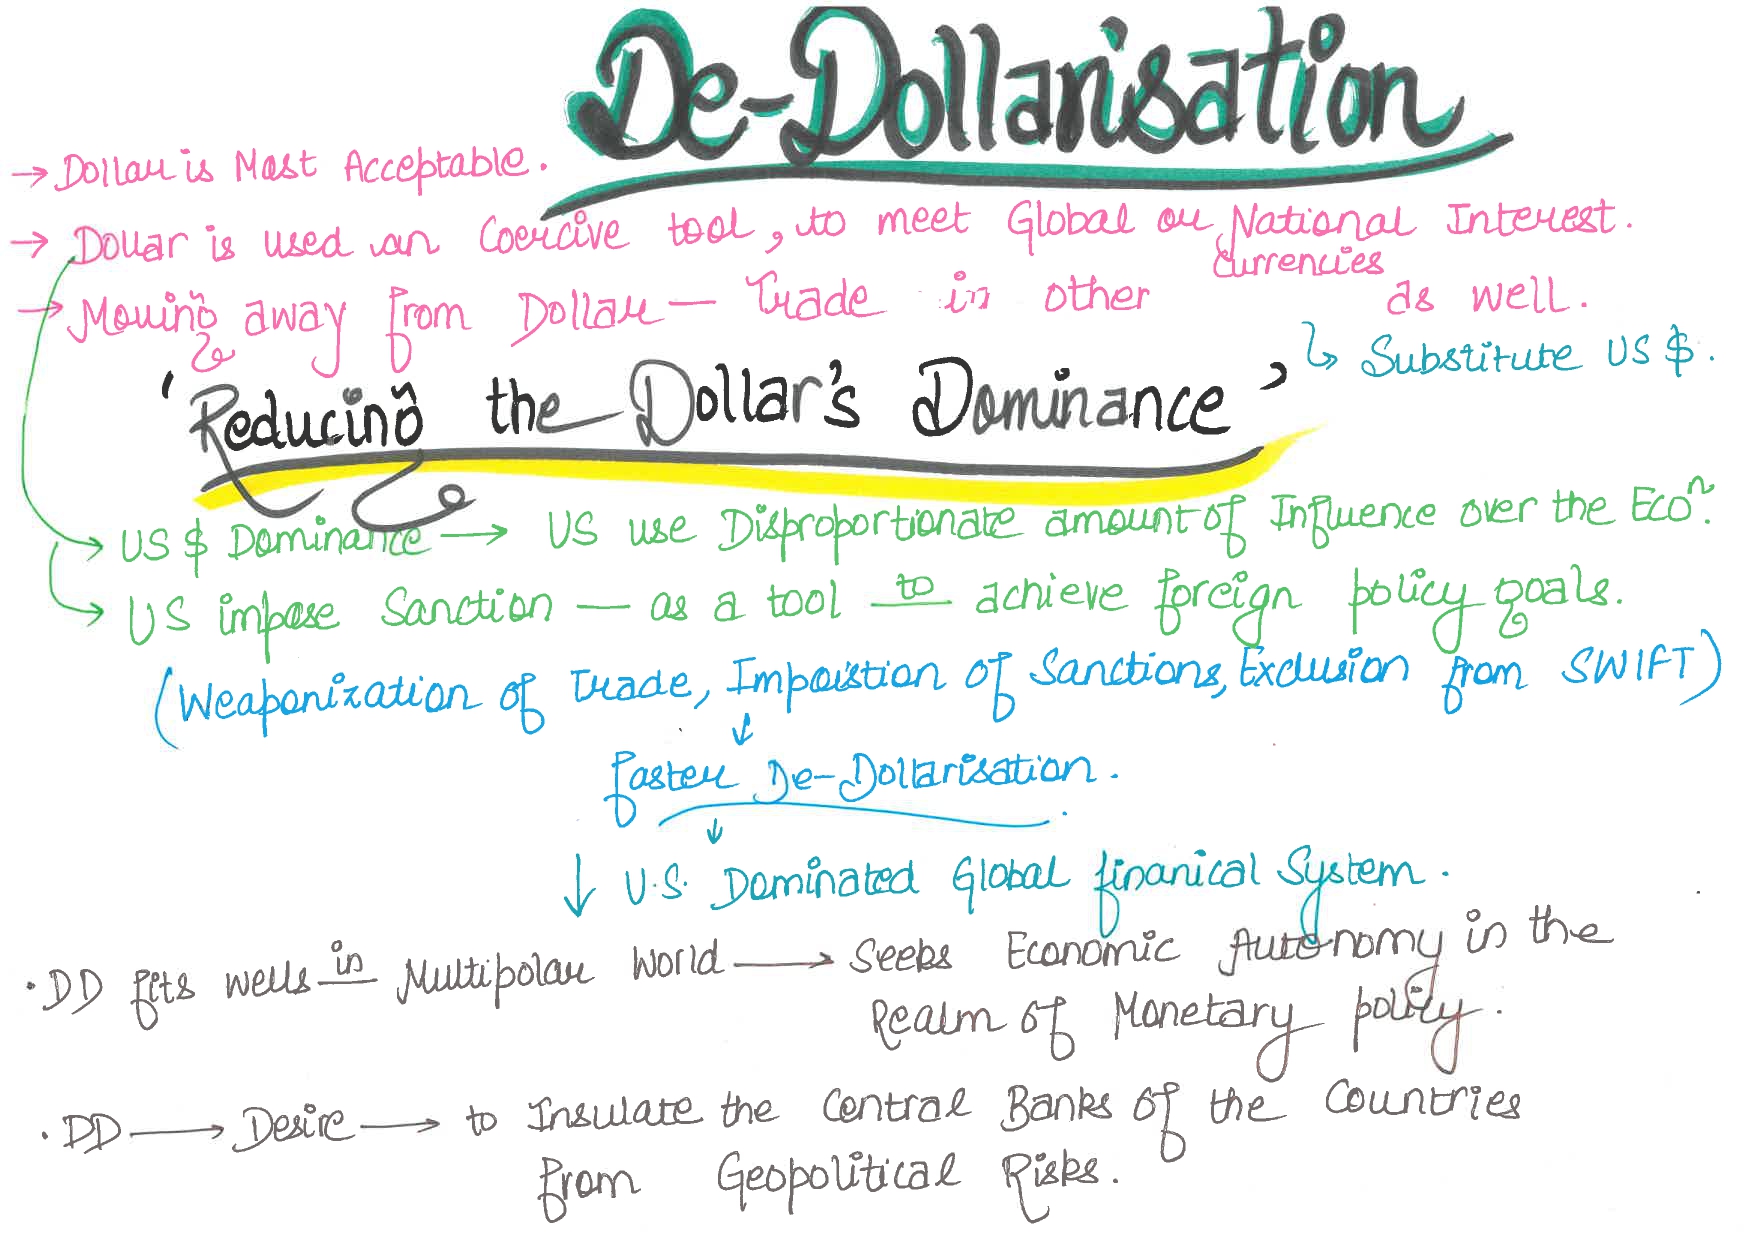 De-Dollarisation
→ Dollar is Most Acceptable.
→ Dollar is used an Coercive tool, to meet Global or National Interest.
→ Moving away from Dollar — Trade in other currencies as well.
↳ Substitute US $.
'Reducing the Dollar's Dominance'
→ US $ Dominance → US use Disproportionate amount of Influence over the Ecoⁿ.
→ US impose Sanction — as a tool to achieve foreign policy goals.
(Weaponization of Trade, Impoistion of Sanctions, Exclusion from SWIFT)
↓
faster De-Dollarisation.
↓
↓ U.S. Dominated Global finanical System.
• DD fits wells in Multipolar World → Seeks Economic Autonomy in the
Realm of Monetary policy.
• DD → Desire → to Insulate the Central Banks of the Countries
from Geopolitical Risks.